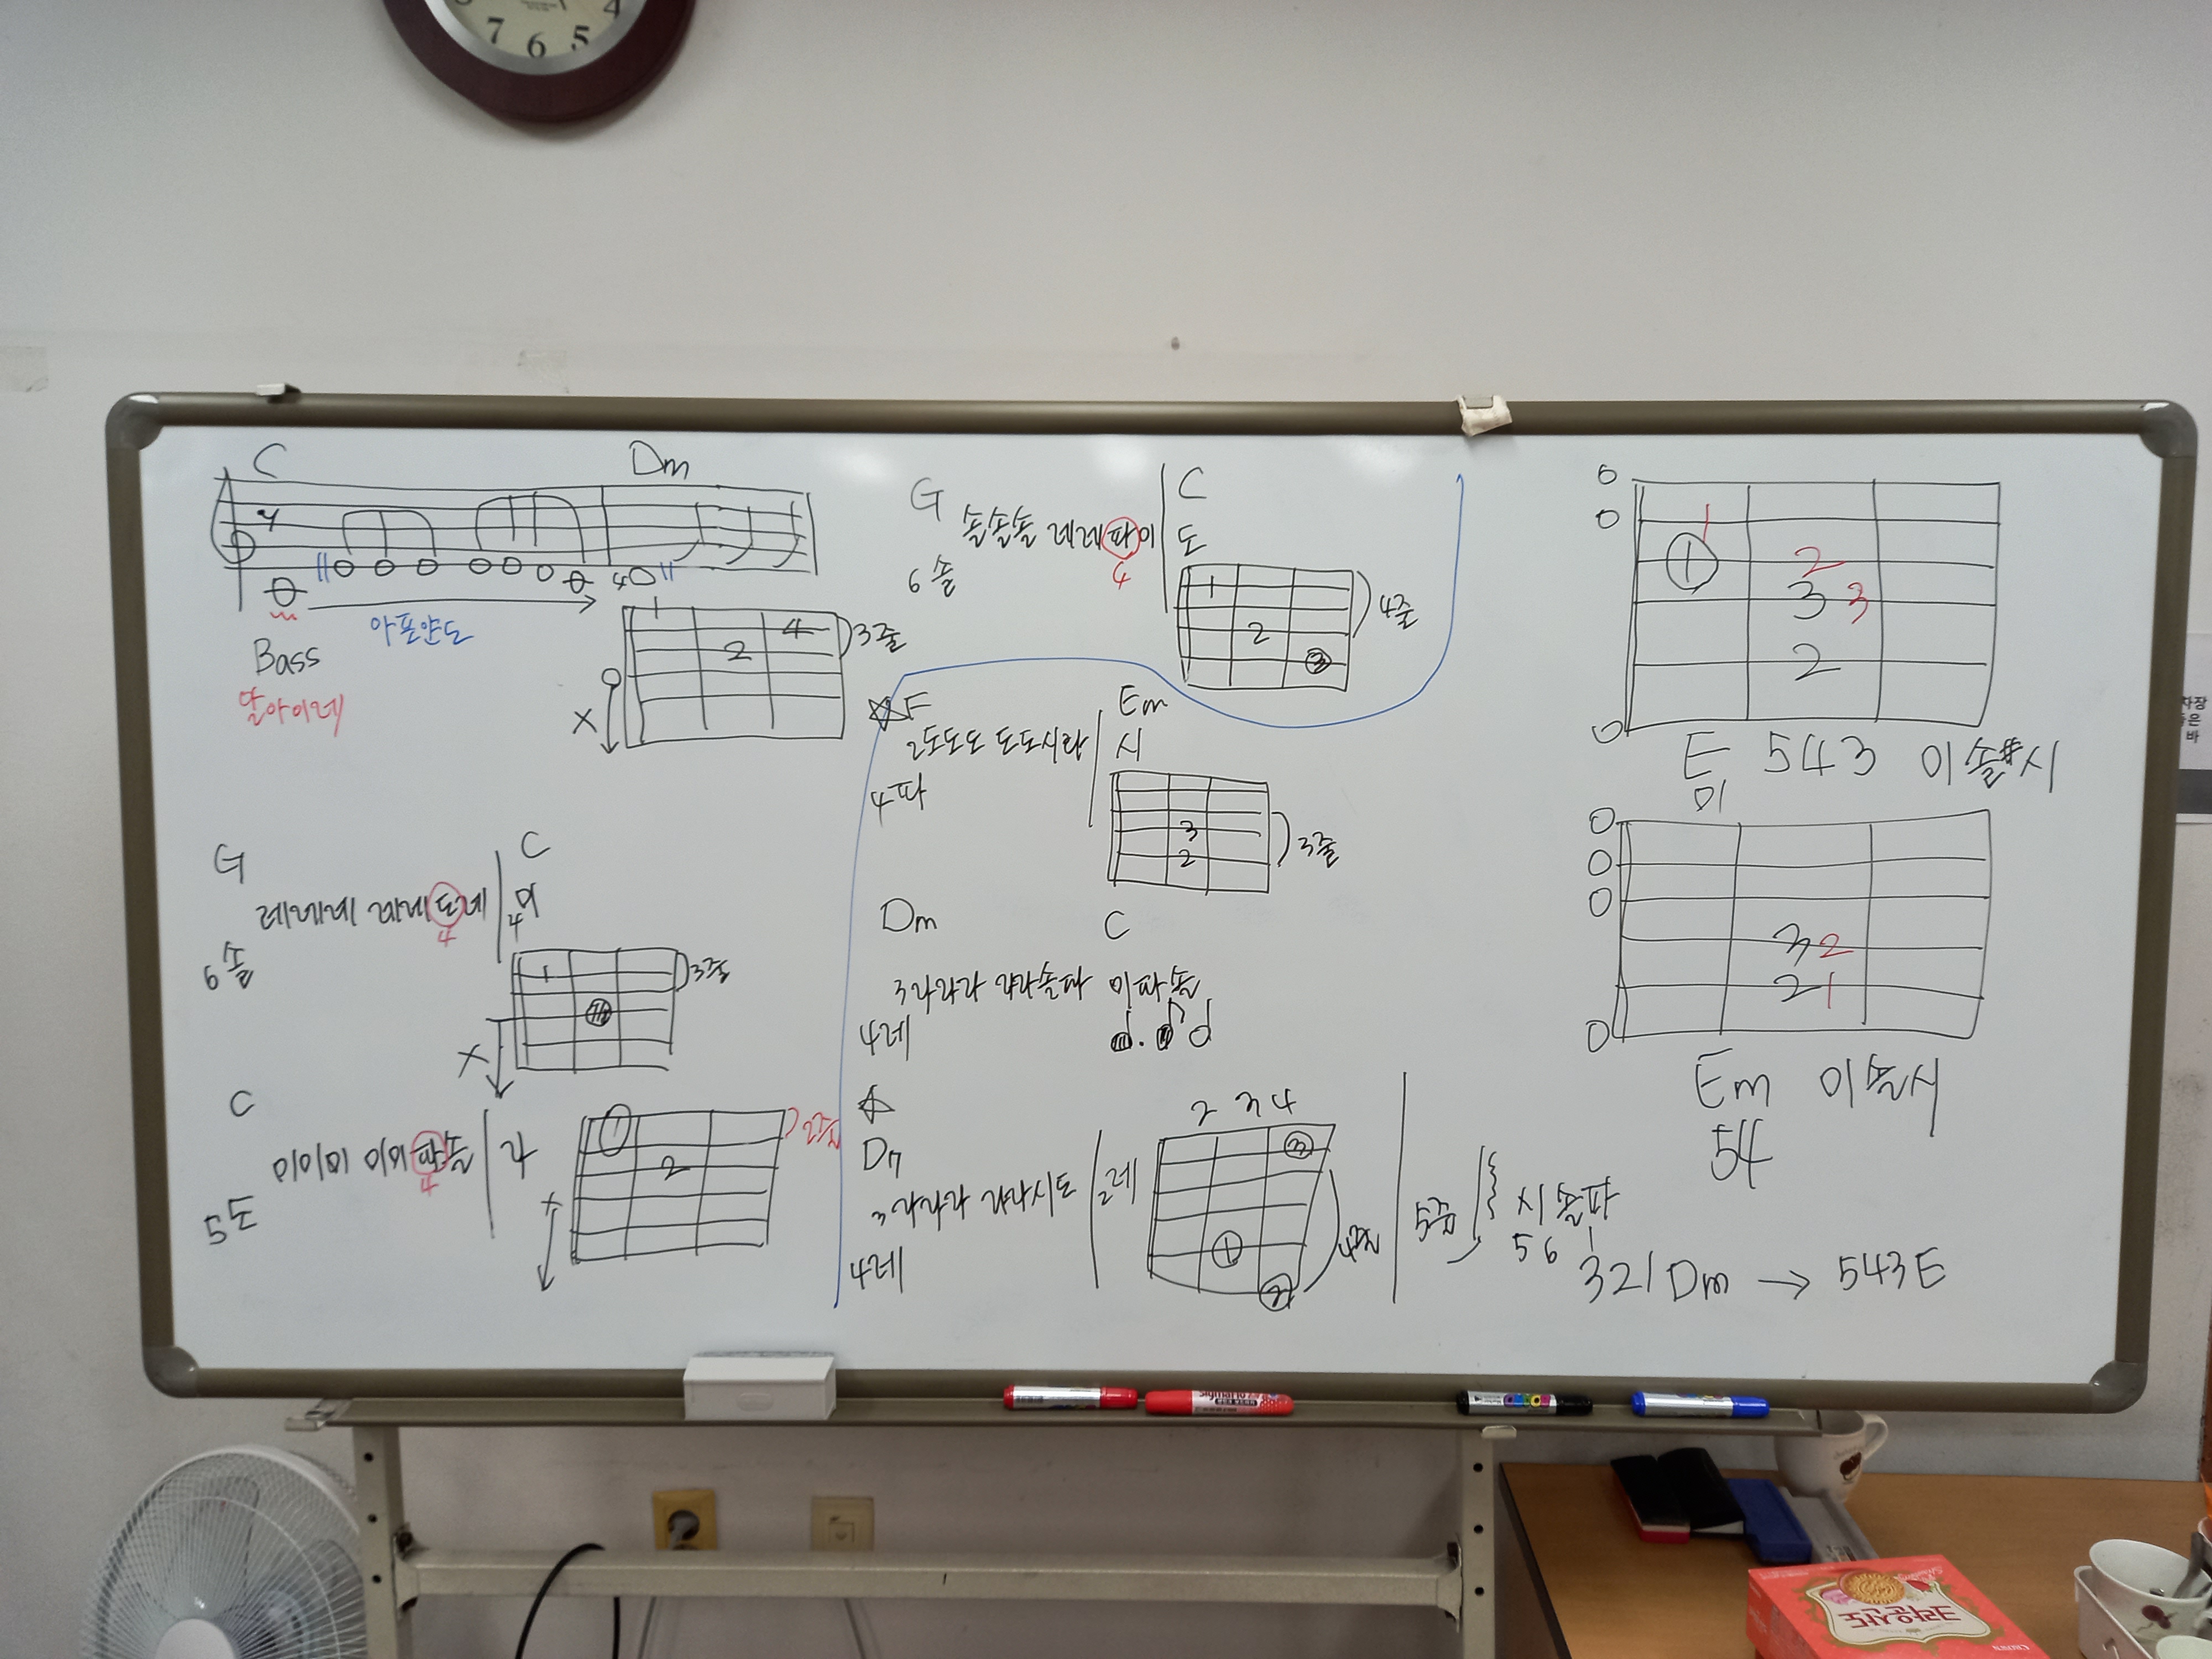 7 6 5 4
C Dm
4
Bass
아포얀도
3줄
X
G C
레레레 레레도레
4
4미
6솔
1
3줄
X
C
미미미 미미파솔 라
4
5도
2
2줄
X
G C
솔솔솔 레레파미 도
4
6솔
1
2
3
4줄
F Em
2도도도 도도시라 시
4파
3
2
3줄
Dm C
3라라라 라라솔파 미파솔
4레
2 3 4
Dm
3라라라 라라시도 2레
4레
3
1
2
4줄
5줄
시솔파
5 6 1
321 Dm → 543E
1
1 2
3 3
2
E 543 미솔#시
미
3 2
2 1
Em 미솔시
54